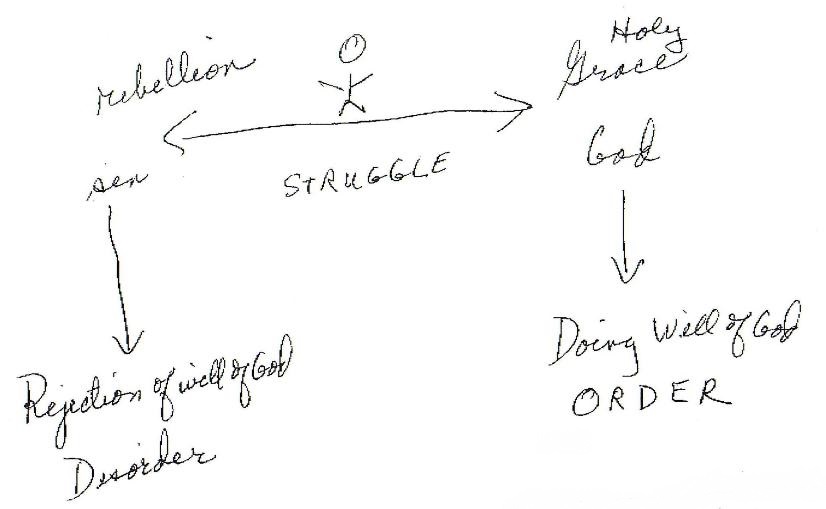 Holy
rebellion
Grace
God
STRUGGLE
sin
Doing Will of God
ORDER
Rejection of will of God
Disorder